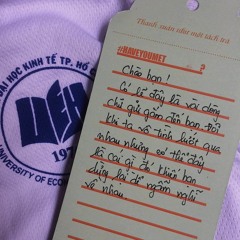 ĐẠI HỌC KINH TẾ TP. HỒ C
UEH
197
UNIVERSITY OF ECON
Thanh xuân như một tách trà
#HAVEYOUMET
Chào bạn!
Có lẽ đây là vài dòng
chữ gửi gắm đến bạn. Đôi
khi ta vô tình lướt qua
nhau nhưng có thể đây
là cái gì đó khiến bạn
dừng lại để ngẫm nghĩ
về nhau.